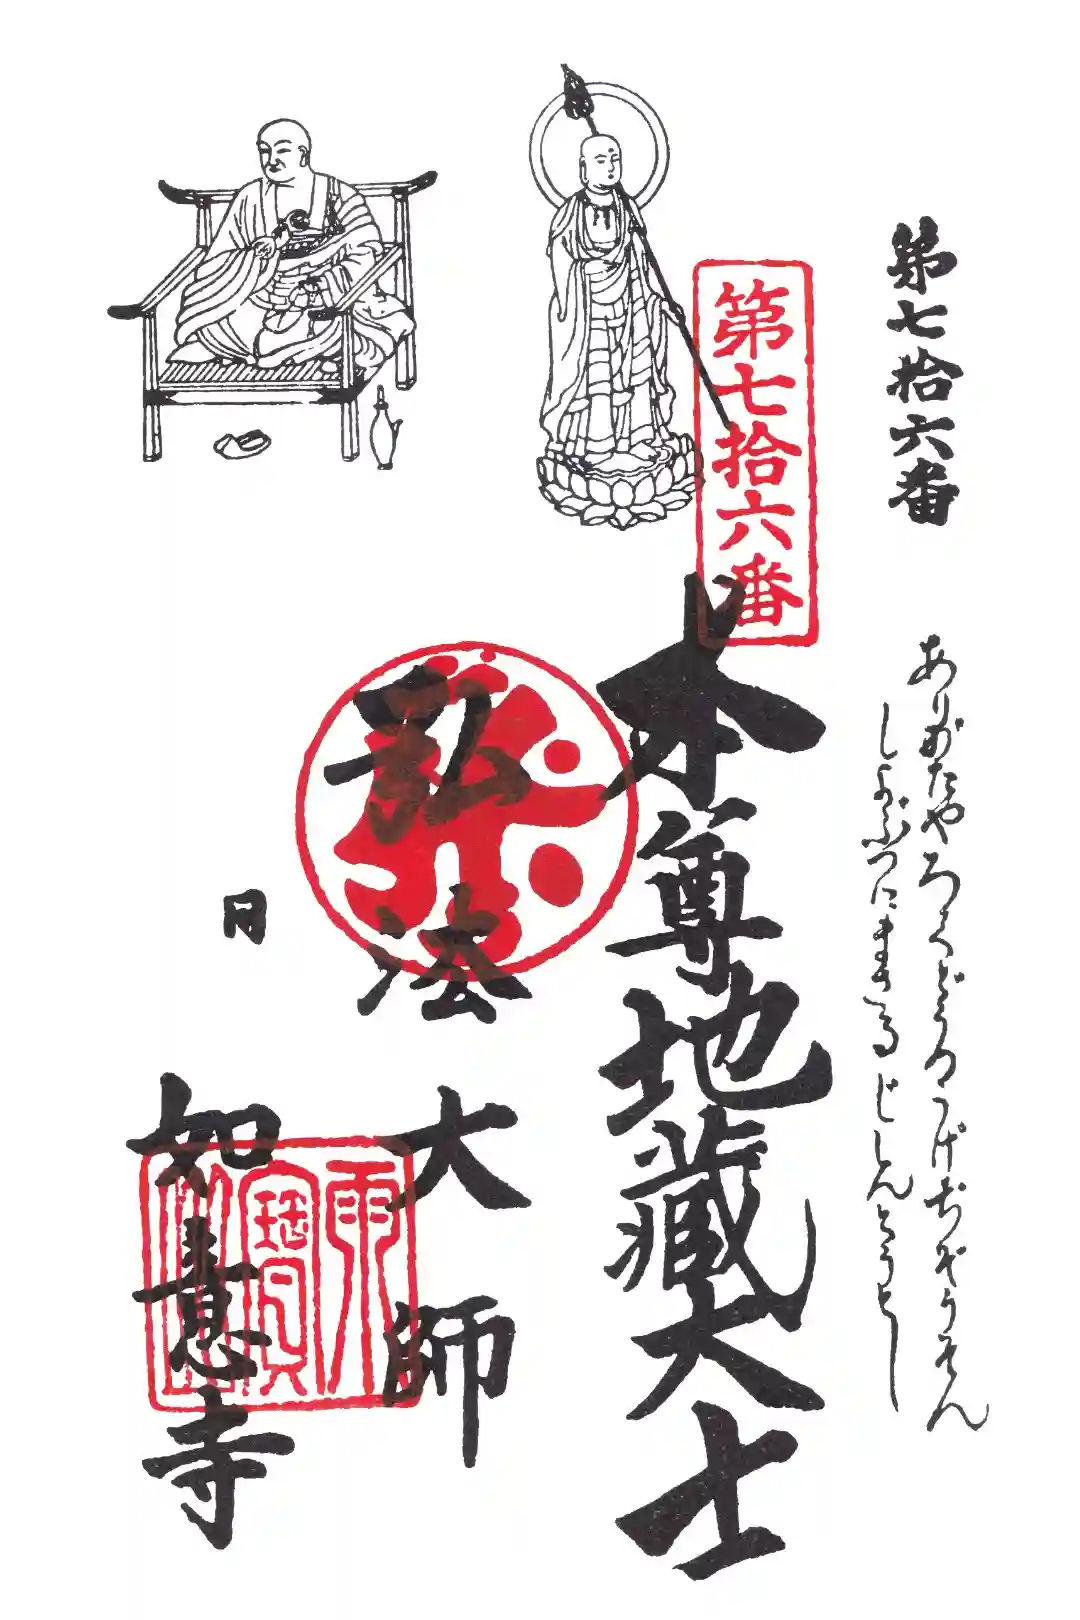 第七拾六番
ありがたやろくどうのうげぢぞうそん
しよぶつにまさるじしんとうとし
第七拾六番
本尊地蔵大士
弘法大師
如意寺
雨寶山